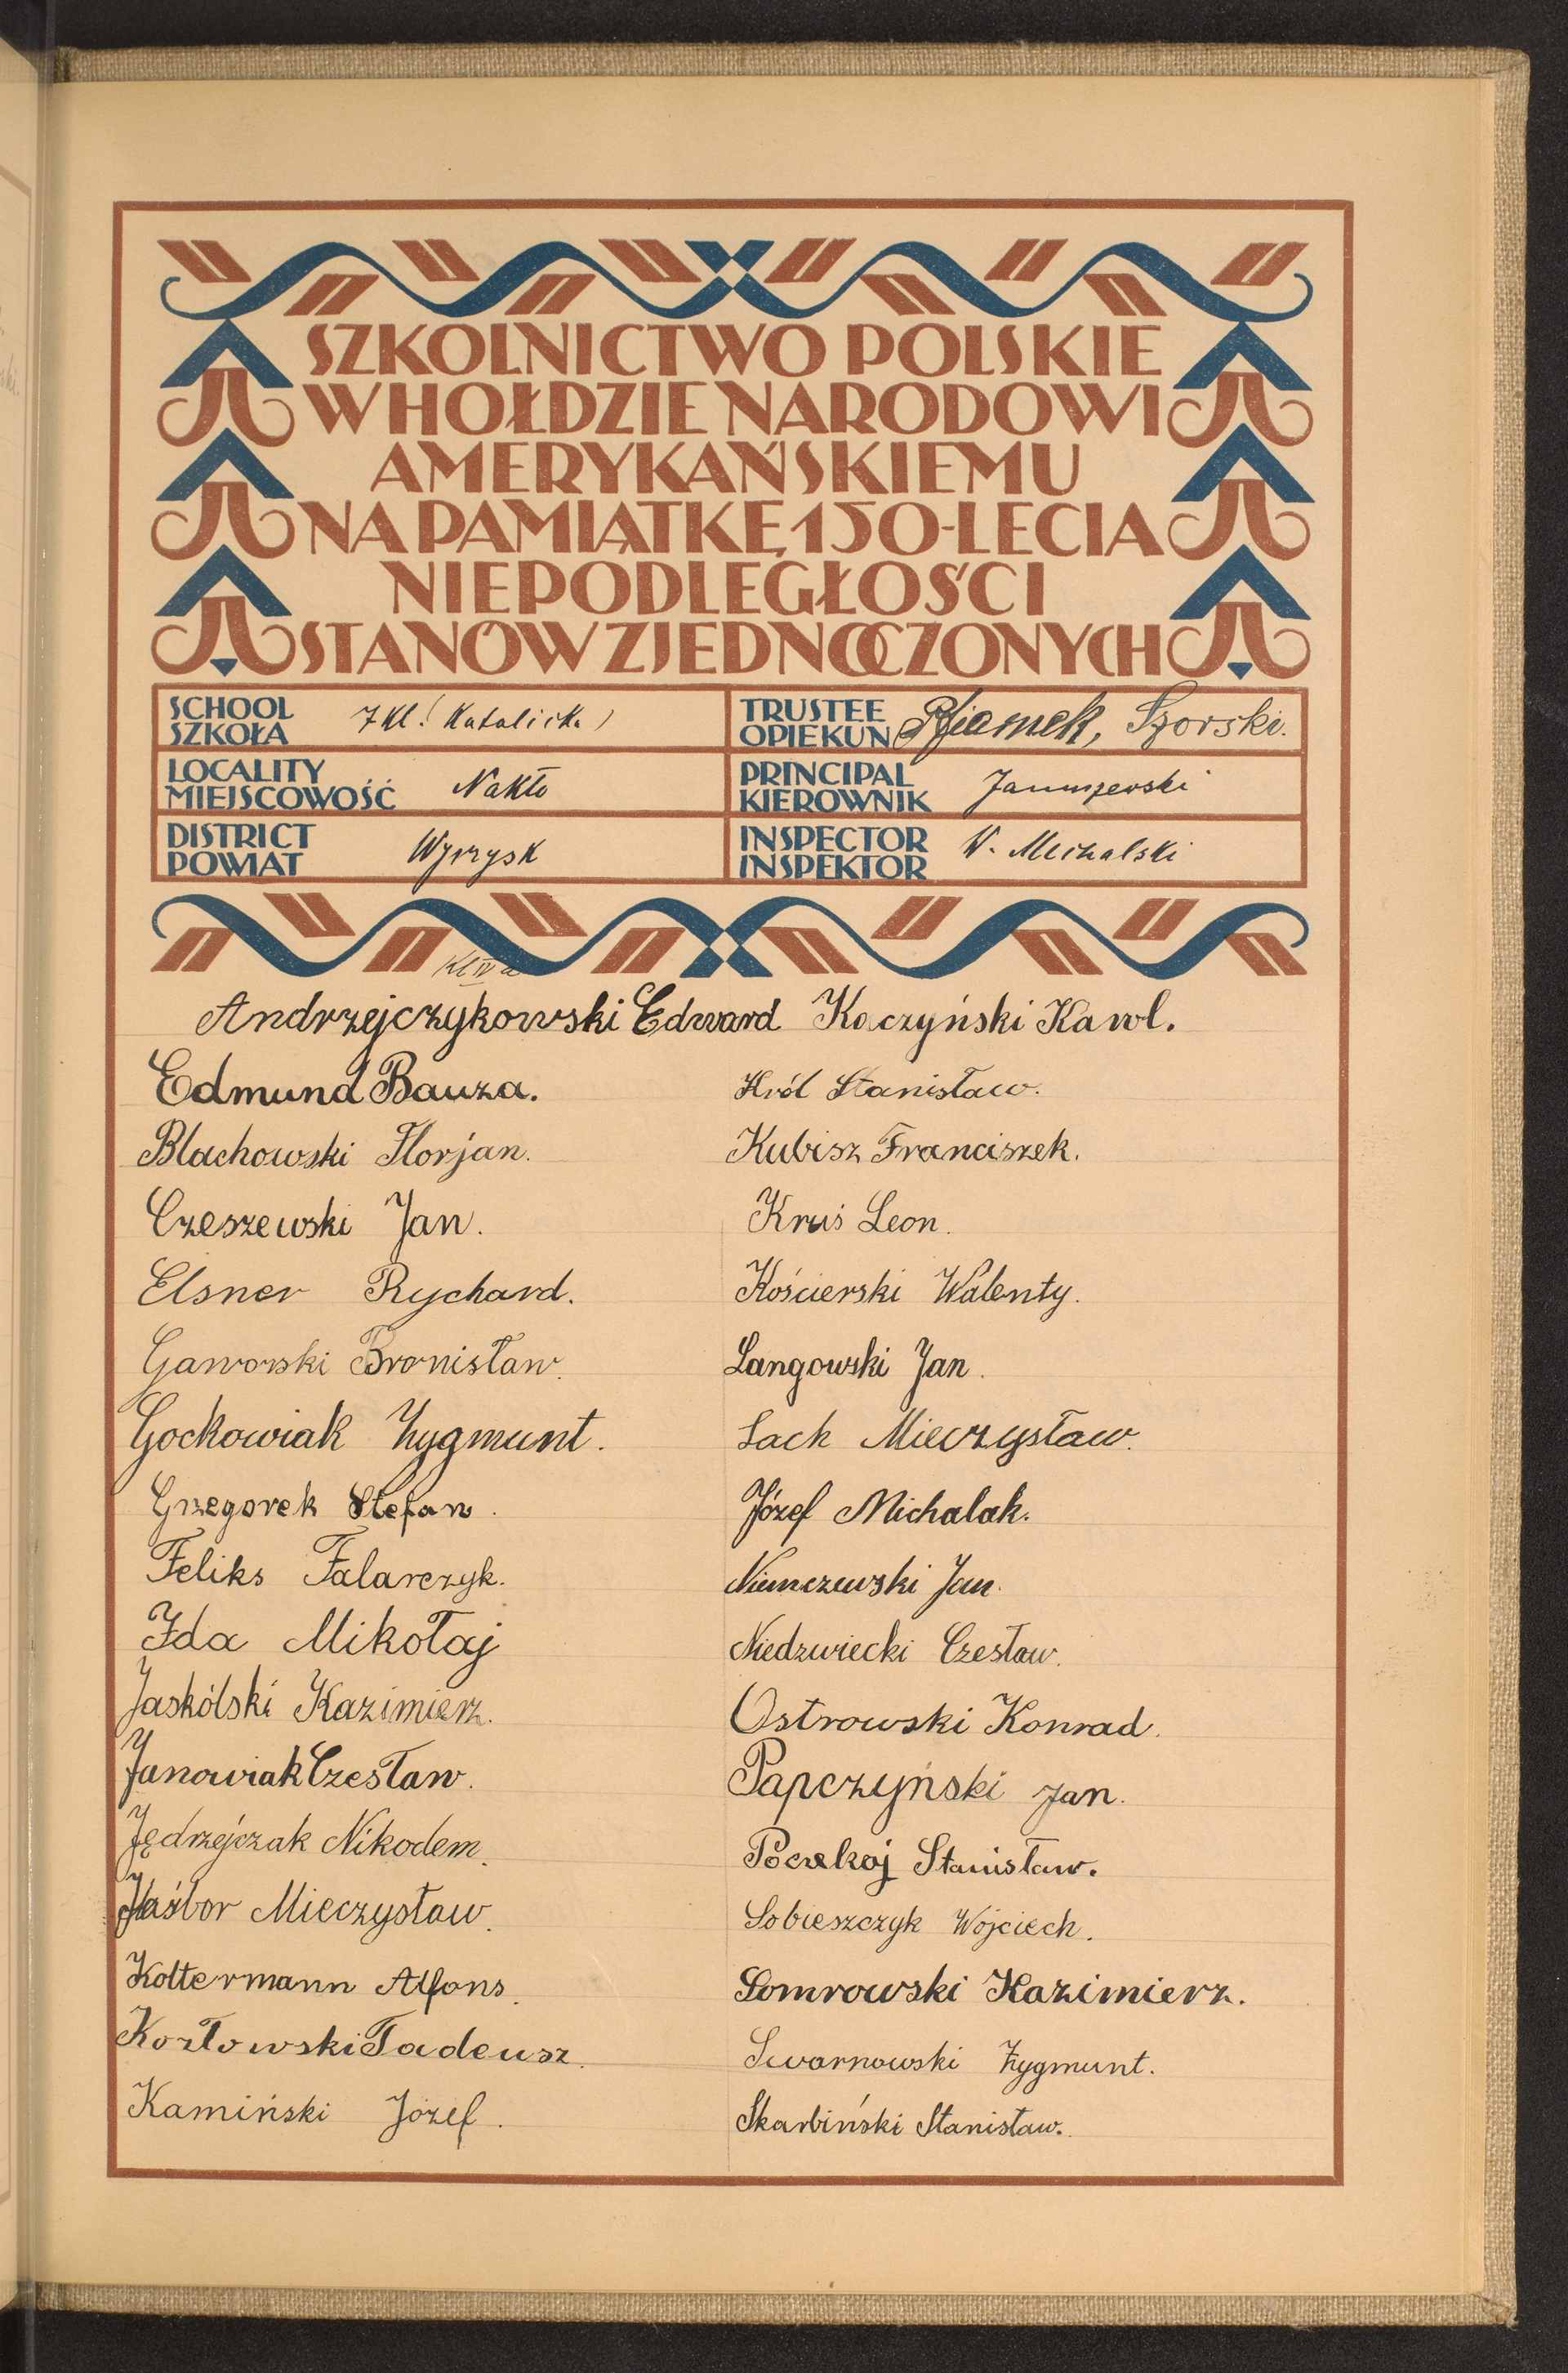 SZKOLNICTWO POLSKIE
W HOŁDZIE NARODOWI
AMERYKAŃSKIEMU
NA PAMIĄTKĘ 150-LECIA
NIEPODLEGŁOŚCI
STANÓW ZJEDNOCZONYCH
SCHOOL
SZKOŁA
7 kl. (Katolicka)
TRUSTEE
OPIEKUN
Szorski.
LOCALITY
MIEJSCOWOŚĆ
Nakło
PRINCIPAL
KIEROWNIK
Januszewski
DISTRICT
POWIAT
Wyrzysk
INSPECTOR
INSPEKTOR
W. Michalski
Kl IV a
Andrzejczykowski Edward
Edmund Bauza.
Blachowski Florjan.
Czeszewski Jan.
Elsner Rychard.
Gaworski Bronisław.
Gockowiak Zygmunt.
Grzegorek Stefan.
Feliks Falarczyk.
Ida Mikołaj
Jaskólski Kazimierz.
Janowiak Czesław.
Jędrzejczak Nikodem.
Jaśbor Mieczysław.
Koltermann Alfons.
Kozłowski Tadeusz.
Kamiński Józef.
Kaczyński Karol.
Król Stanisław.
Kubisz Franciszek.
Kruś Leon.
Kościerski Walenty.
Langowski Jan.
Lach Mieczysław.
Józef Michalak.
Niemczewski Jan.
Niedzwiecki Czesław.
Ostrowski Konrad.
Papczyński Jan.
Poczekaj Stanisław.
Sobieszczyk Wojciech.
Somrowski Kazimierz.
Swarnowski Zygmunt.
Skarbiński Stanisław.